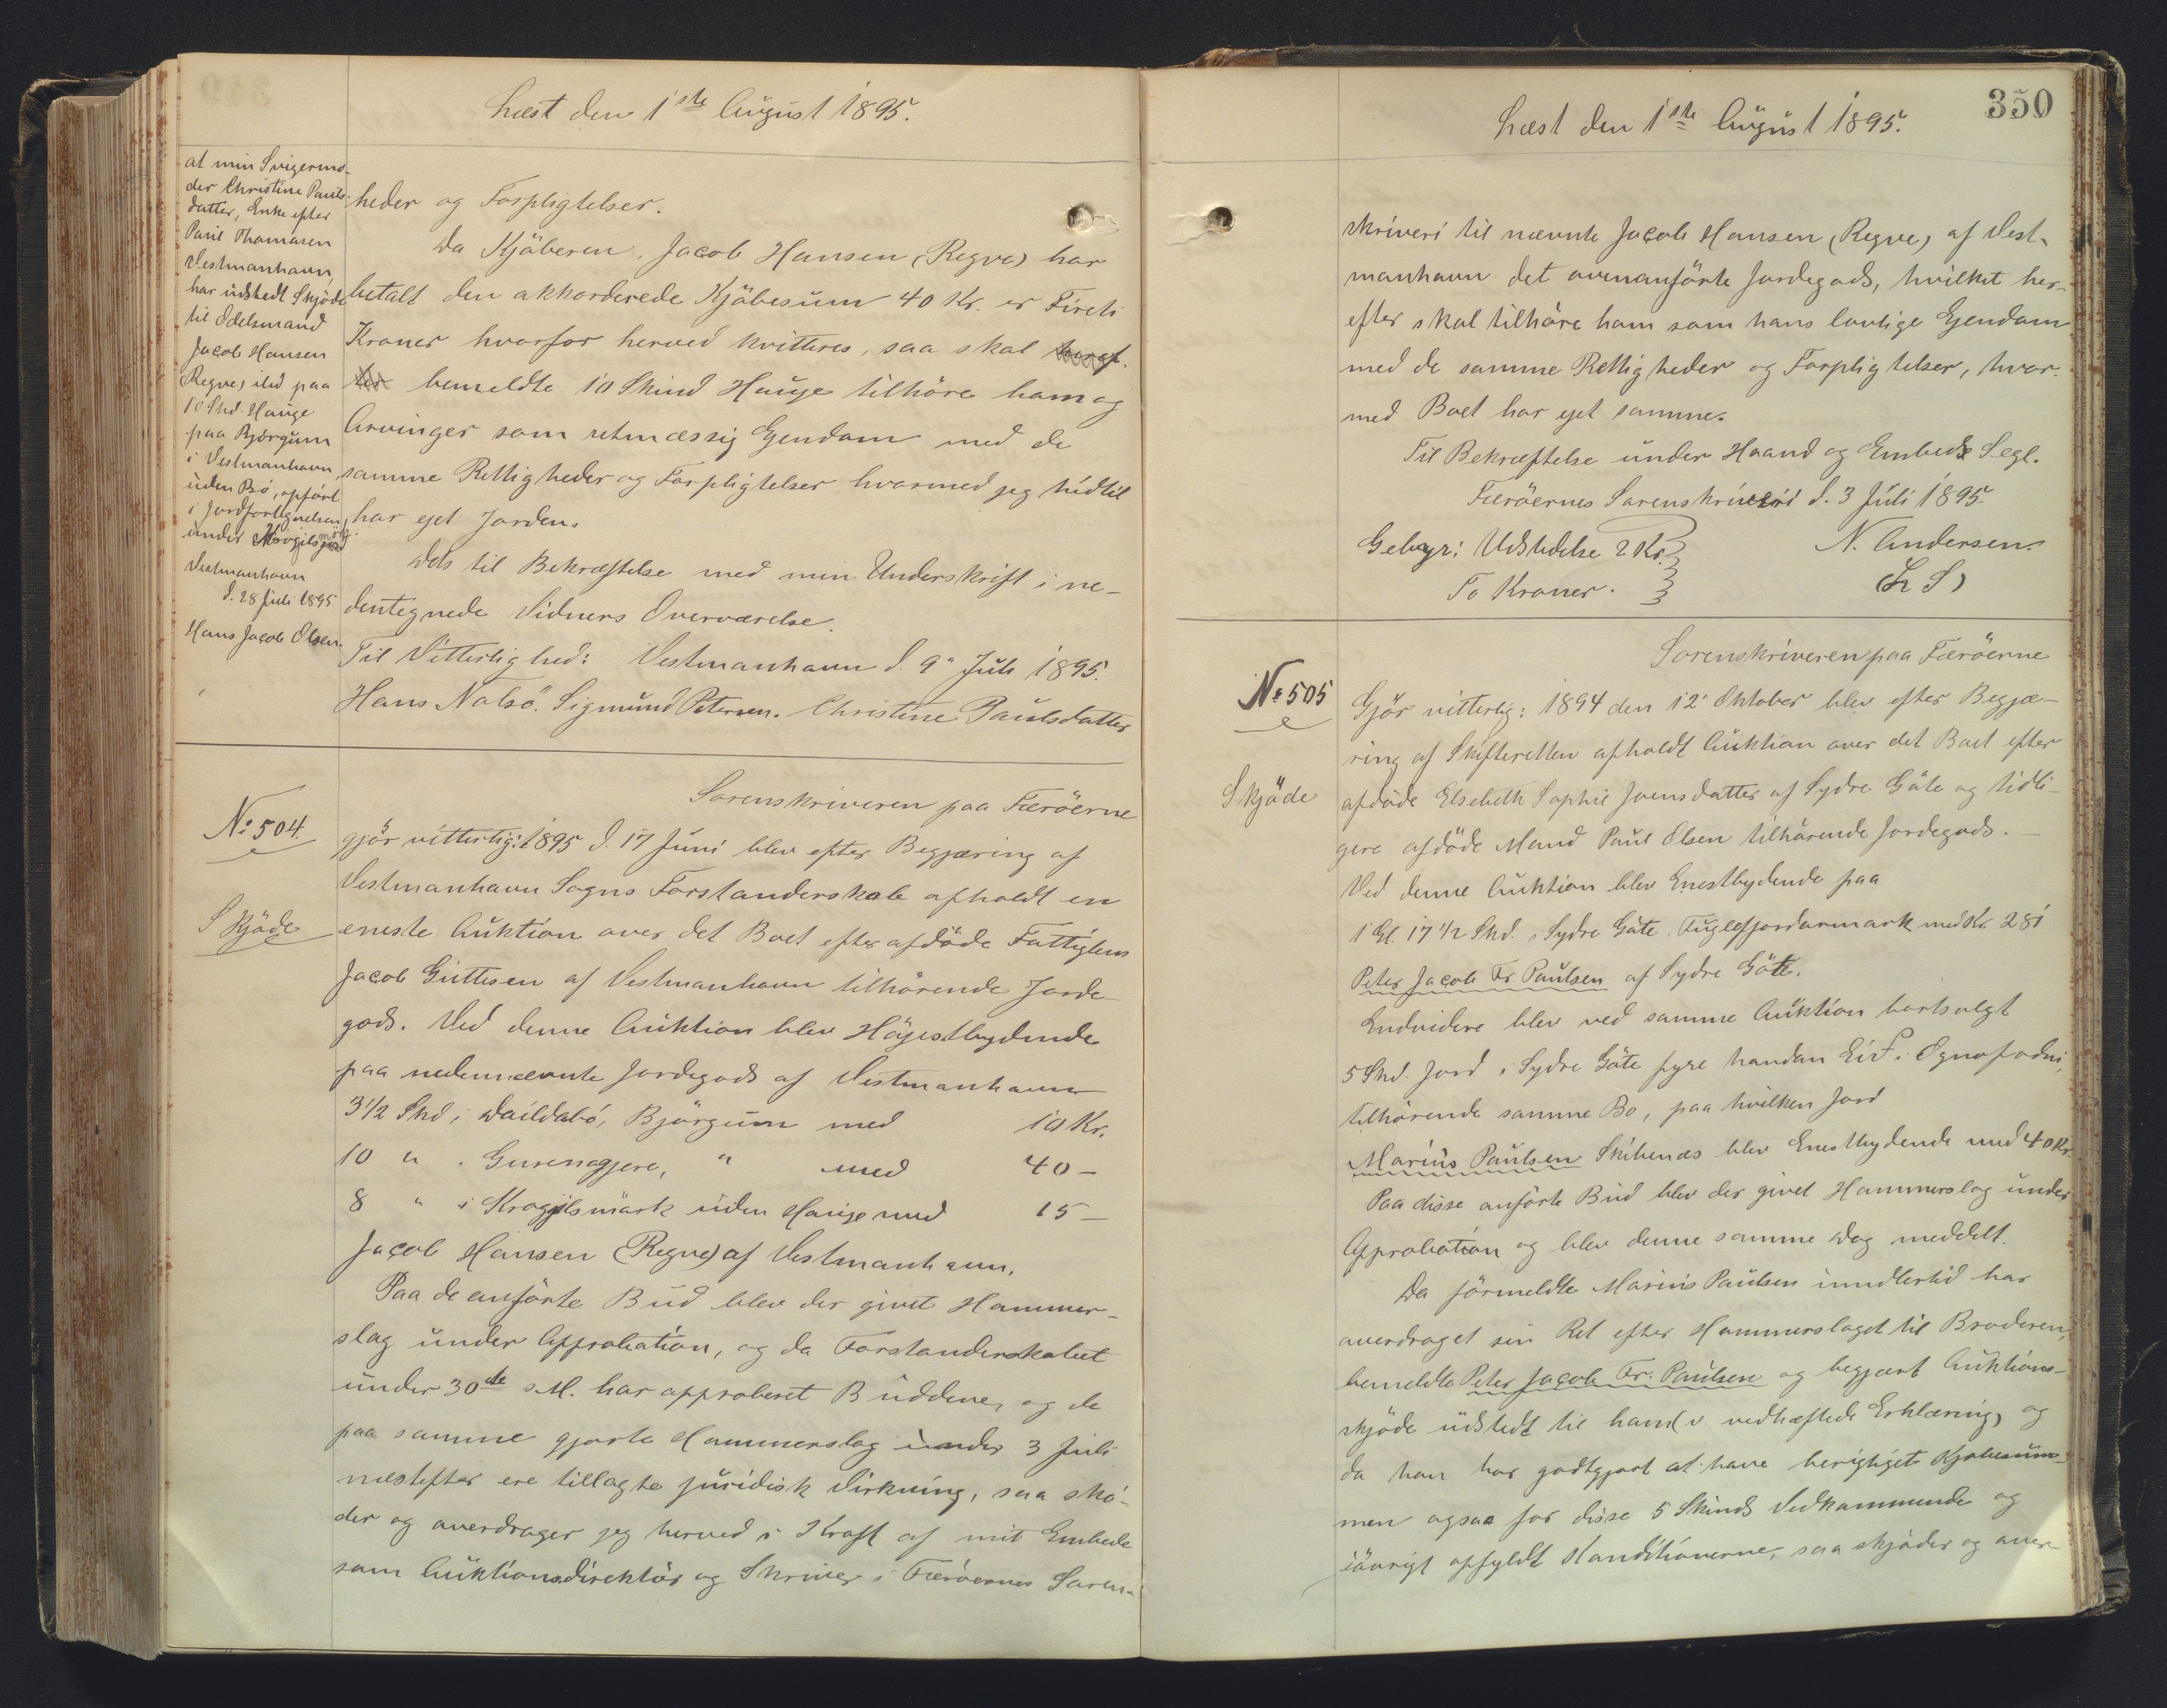 Læst den 1ste August 1895.
at min Svigermo-
der Christine Pauls-
datter, Enke efter
Paul Thomasen
Vestmanhavn
har udstedt Skjöde
til Odelsmand
Jacob Hansen
(Regve) ibd paa
10 Skd. Hauge
paa Björgum
i Vestmanhavn
uden Bö, opfört
i Jordfortegnelsen
under
Vestmanhavn
d. 28 Juli 1895
Hans Jacob Olsen.
heder og Forpligtelser.
Da Kjöberen, Jacob Hansen (Regve) har
betalt den akkorderede Kjöbesum 40 Kr. er Fireti
Kroner hvorfor herved kvitteres, saa skal
bemeldte 10 Skind Hauge tilhöre ham og
Arvinger som retmæssig Ejendom med de
samme Rettigheder og Forpligtelser hvormed jeg hidtil
har ejet Jorden.
Dets til Bekræftelse med min Underskrift i ne-
dentegnede Vidners Overværelse.
Til Vitterlighed: Vestmanhavn d. 9' Juli 1895.
Hans Nolsö. Sigmund Petersen. Christine Paulsdatter
No 504.
Skjöde
Sorenskriveren paa Færöerne
gjör vitterlig: 1895 d. 17 Juni blev efter Begjæring af
Vestmanhavn Sogns Forstanderskab afholdt en
eneste Auktion over det Boet efter afdöde Fattiglem
Jacob Guttesen af Vestmanhavn tilhörende Jorde-
gods. Ved denne Auktion blev Höjestbydende
paa nedennævnte Jordegods af Vestmanhavn
3 1/2 Skd i Daildabö, Björgum med 10 Kr.
10 " . Gurenagjera, " med 40 -
8 " i Krogjilsmörk uden Hauge med 15 -
Jacob Hansen (Regve) af Vestmanhavn.
Paa de anförte Bud blev der givet Hammer-
slag under Approbation, og da Forstanderskabet
under 30de s.M. har approberet Buddene, og de
paa samme gjorte Hammerslag under 3 Juli
næstefter ere tillagte juridisk Virkning, saa skö-
der og overdrager jeg herved i Kraft af mit Embede
som Auktionsdirektör og Skriver i Færöernes Soren-
350
Læst den 1ste August 1895.
skriveri til nævnte Jacob Hansen (Regve) af Vest-
manhavn det ovenanförte Jordegods, hvilket her-
efter skal tilhöre ham som hans lovlige Ejendom
med de samme Rettigheder og Forpligtelser, hvor-
med Boet har ejet samme.
Til Bekræftelse under Haand og Embeds Segl.
Færöernes Sorenskriveri d. 3 Juli 1895.
Gebyr: Udstedelse 2 Kr. N. Andersen.
To Kroner. (L S)
No 505
Skjöde
Sorenskriveren paa Færöerne
Gjör vitterlig: 1894 den 12' Oktober blev efter Begjæ-
ring af Skifteretten afholdt Auktion over det Boet efter
afdöde Elsebeth Sophie Joensdatter af Sydre Göte og tidli-
gere afdöde Mand Paul Olsen tilhörende Jordegods. -
Ved denne Auktion blev Enestbydende paa
1 Gl. 17 1/2 Skd. i Sydre Göte, Fuglefjordarmark med Kr. 281
Peter Jacob Fr. Paulsen af Sydre Göte.
Endvidere blev ved samme Auktion bortsolgt
5 Skd. Jord i Sydre Göte fyre handan Eid i
tilhörende samme Bo, paa hvilken Jord
Marius Paulsen Skibenæs blev Enestbydende med 40 Kr.
Paa disse anförte Bud blev der givet Hammerslag under
Approbation og blev denne samme Dag meddelt.
Da förmeldte Marius Paulsen imidlertid har
overdraget sin Ret efter Hammerslaget til Broderen,
bemeldte Peter Jacob Fr. Paulsen og begjært Auktions-
skjöde udstedt til ham (v. vedhæftede Erklæring) og
da han har godtgjort at have berigtiget Kjöbesum-
men ogsaa for disse 5 Skinds Vedkommende og
iövrigt opfyldt Konditionerne, saa skjöder og over-